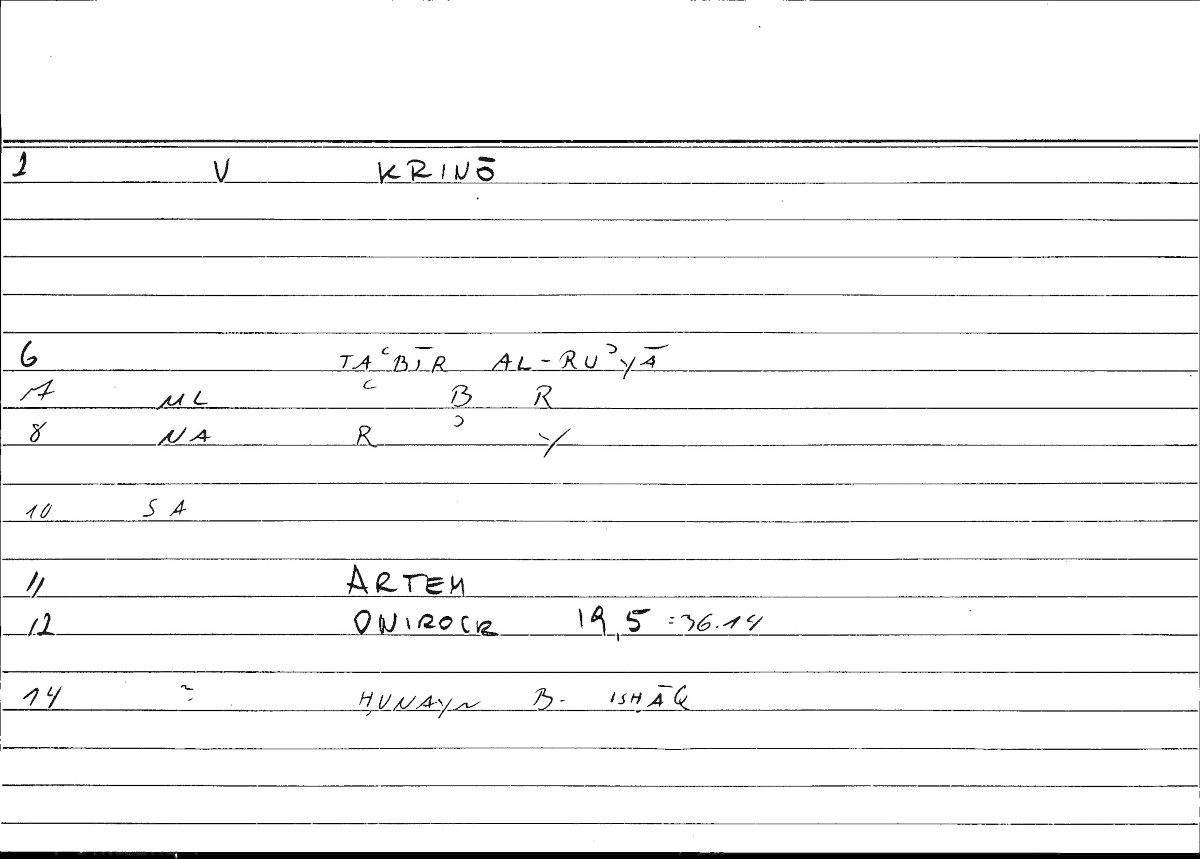 1 V KRINŌ
6 TAʿBĪR AL-RUʾYĀ
7 ML ʿ B R
8 NA R ʾ Y
10 SA
11 ARTEM
12 ONIROCR 19,5 =36.14
14 ~ ḤUNAYN B. ISḤĀQ